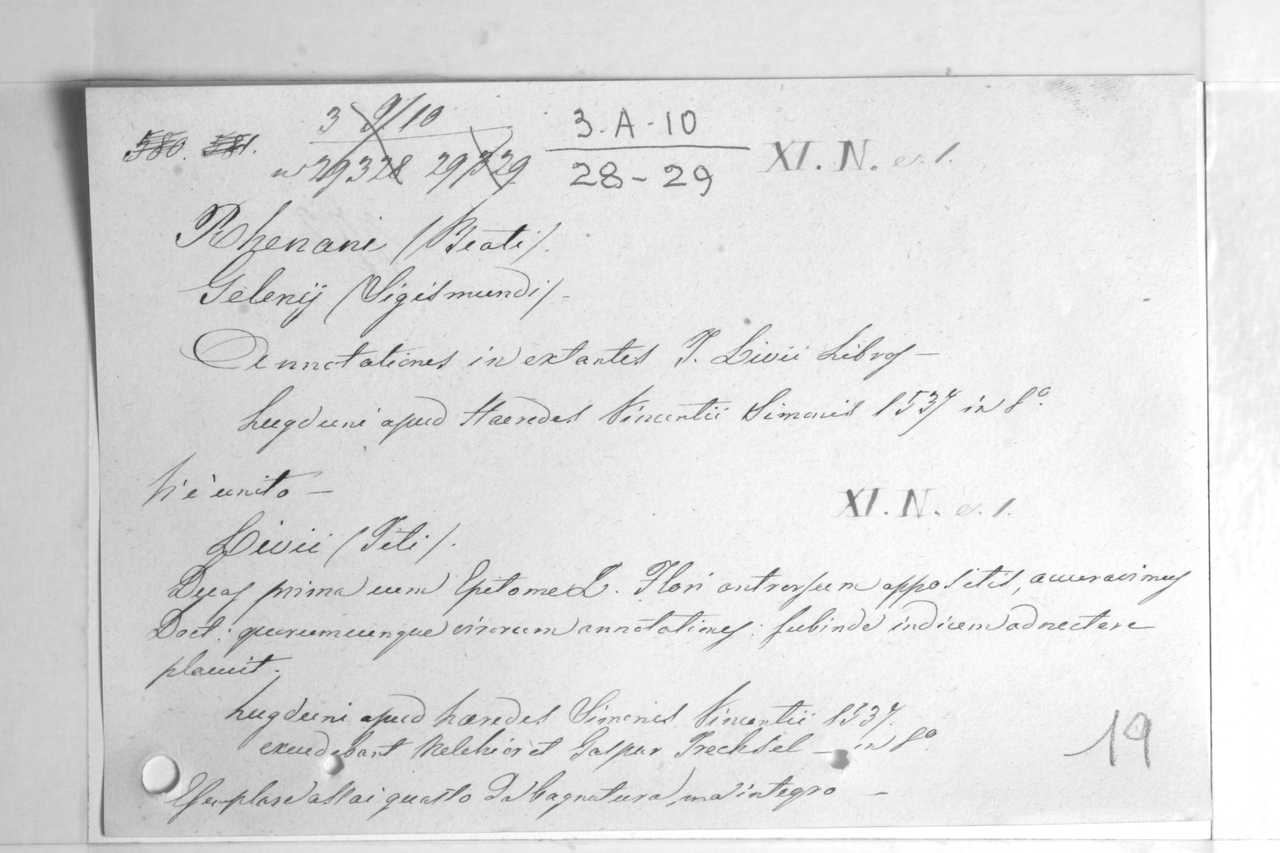 580. 581.
3 9/10
n 29328 29329
3-A-10
28-29
XI. N. e. 1.
Rhenani (Beati).
Gelenij (Sigismundi).
Annotationes in extantes T. Livii Libros —
Lugduni apud Haeredes Vincentii Simonis 1537 in 8°.
V'è unito —
XI. N. e. 1.
Livii (Titi).
Decas prima cum Epitome L. Flori antrorsum appositis, accuravimus
Doct: quorumcunque virorum annotationes: subinde indicem adnectere
placuit.
Lugduni apud haeredes Simonis Vincentii 1537.
excudebant Melchior et Gaspar Trechsel — in 8°
Esemplare assai guasto da bagnatura, ma integro —
19